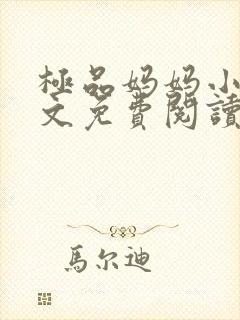 極品妈妈小
文免費閱讀
馬尔迪